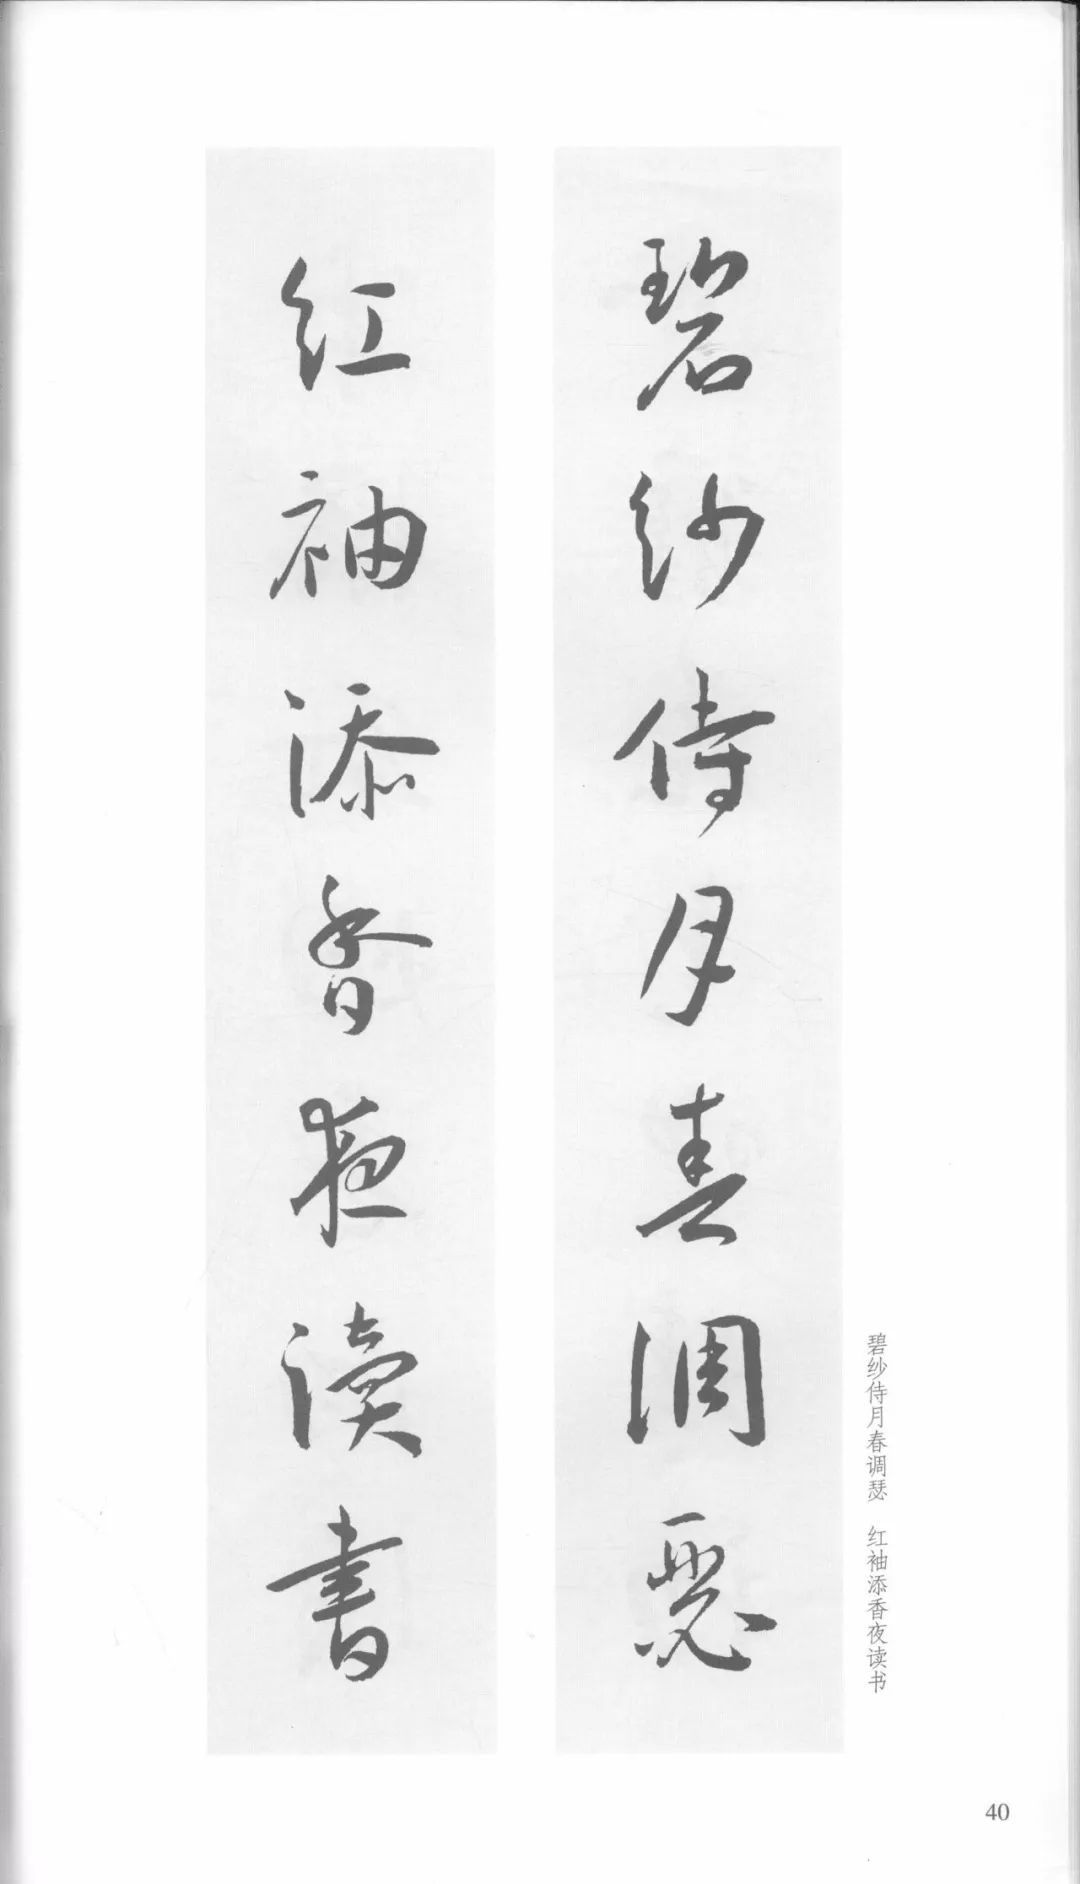 碧纱侍月春调瑟
红袖添香夜读书
碧纱侍月春调瑟 红袖添香夜读书
40